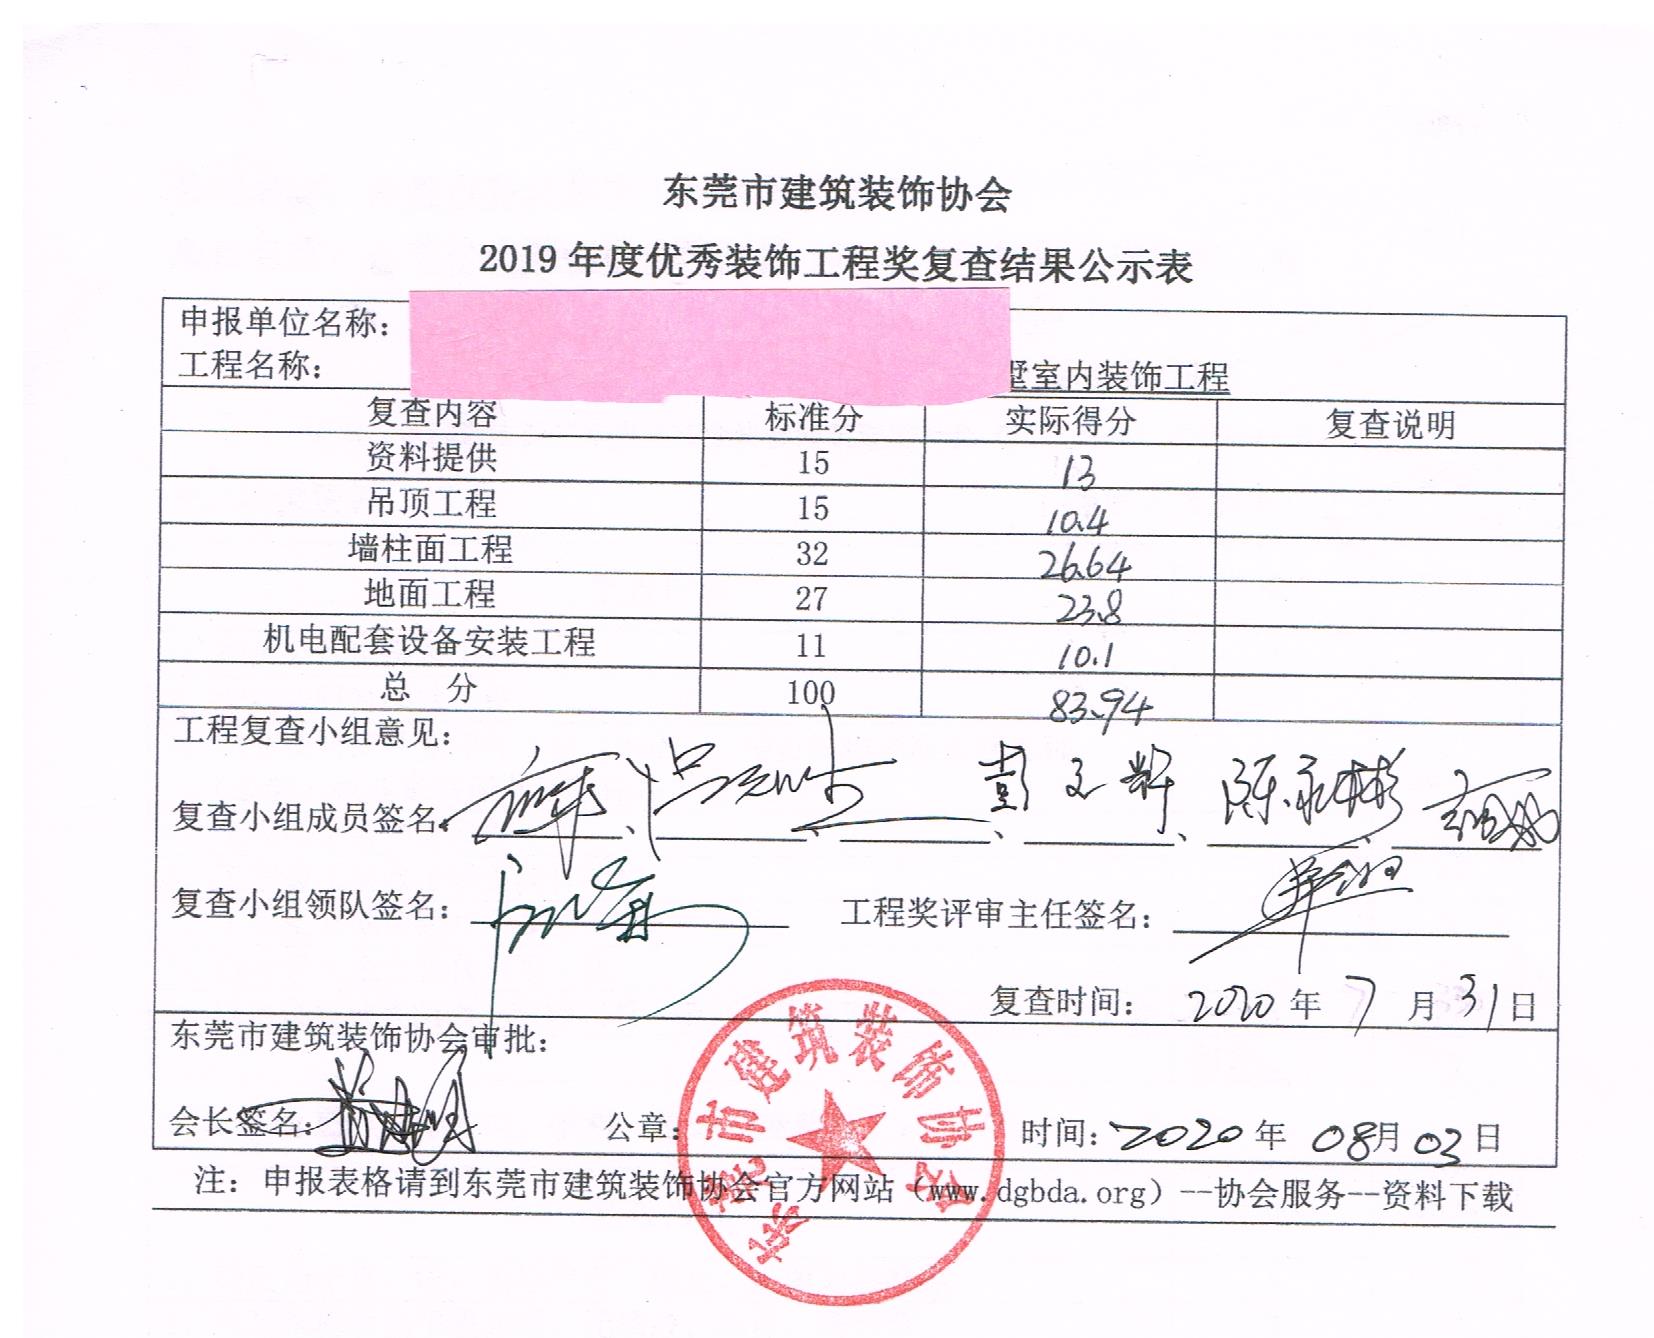 东莞市建筑装饰协会
2019 年度优秀装饰工程奖复查结果公示表
申报单位名称：
工程名称： 墅室内装饰工程
复查内容 标准分 实际得分 复查说明
资料提供 15 13
吊顶工程 15 10.4
墙柱面工程 32 26.64
地面工程 27 23.8
机电配套设备安装工程 11 10.1
总 分 100 83.94
工程复查小组意见：
复查小组成员签名： 、 、 、 彭文辉 、 陈永彬 、
复查小组领队签名： 工程奖评审主任签名：
复查时间： 2020 年 7 月 31 日
东莞市建筑装饰协会审批：
会长签名： 公章： 时间： 2020 年 08 月 03 日
东莞市建筑装饰协会
注：申报表格请到东莞市建筑装饰协会官方网站（www.dgbda.org）--协会服务--资料下载